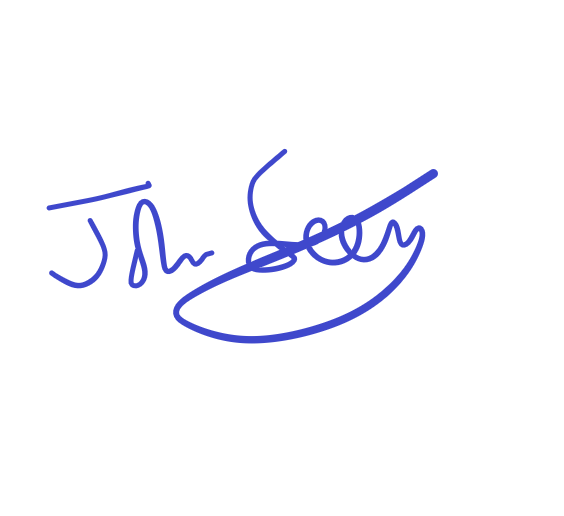 John Seen